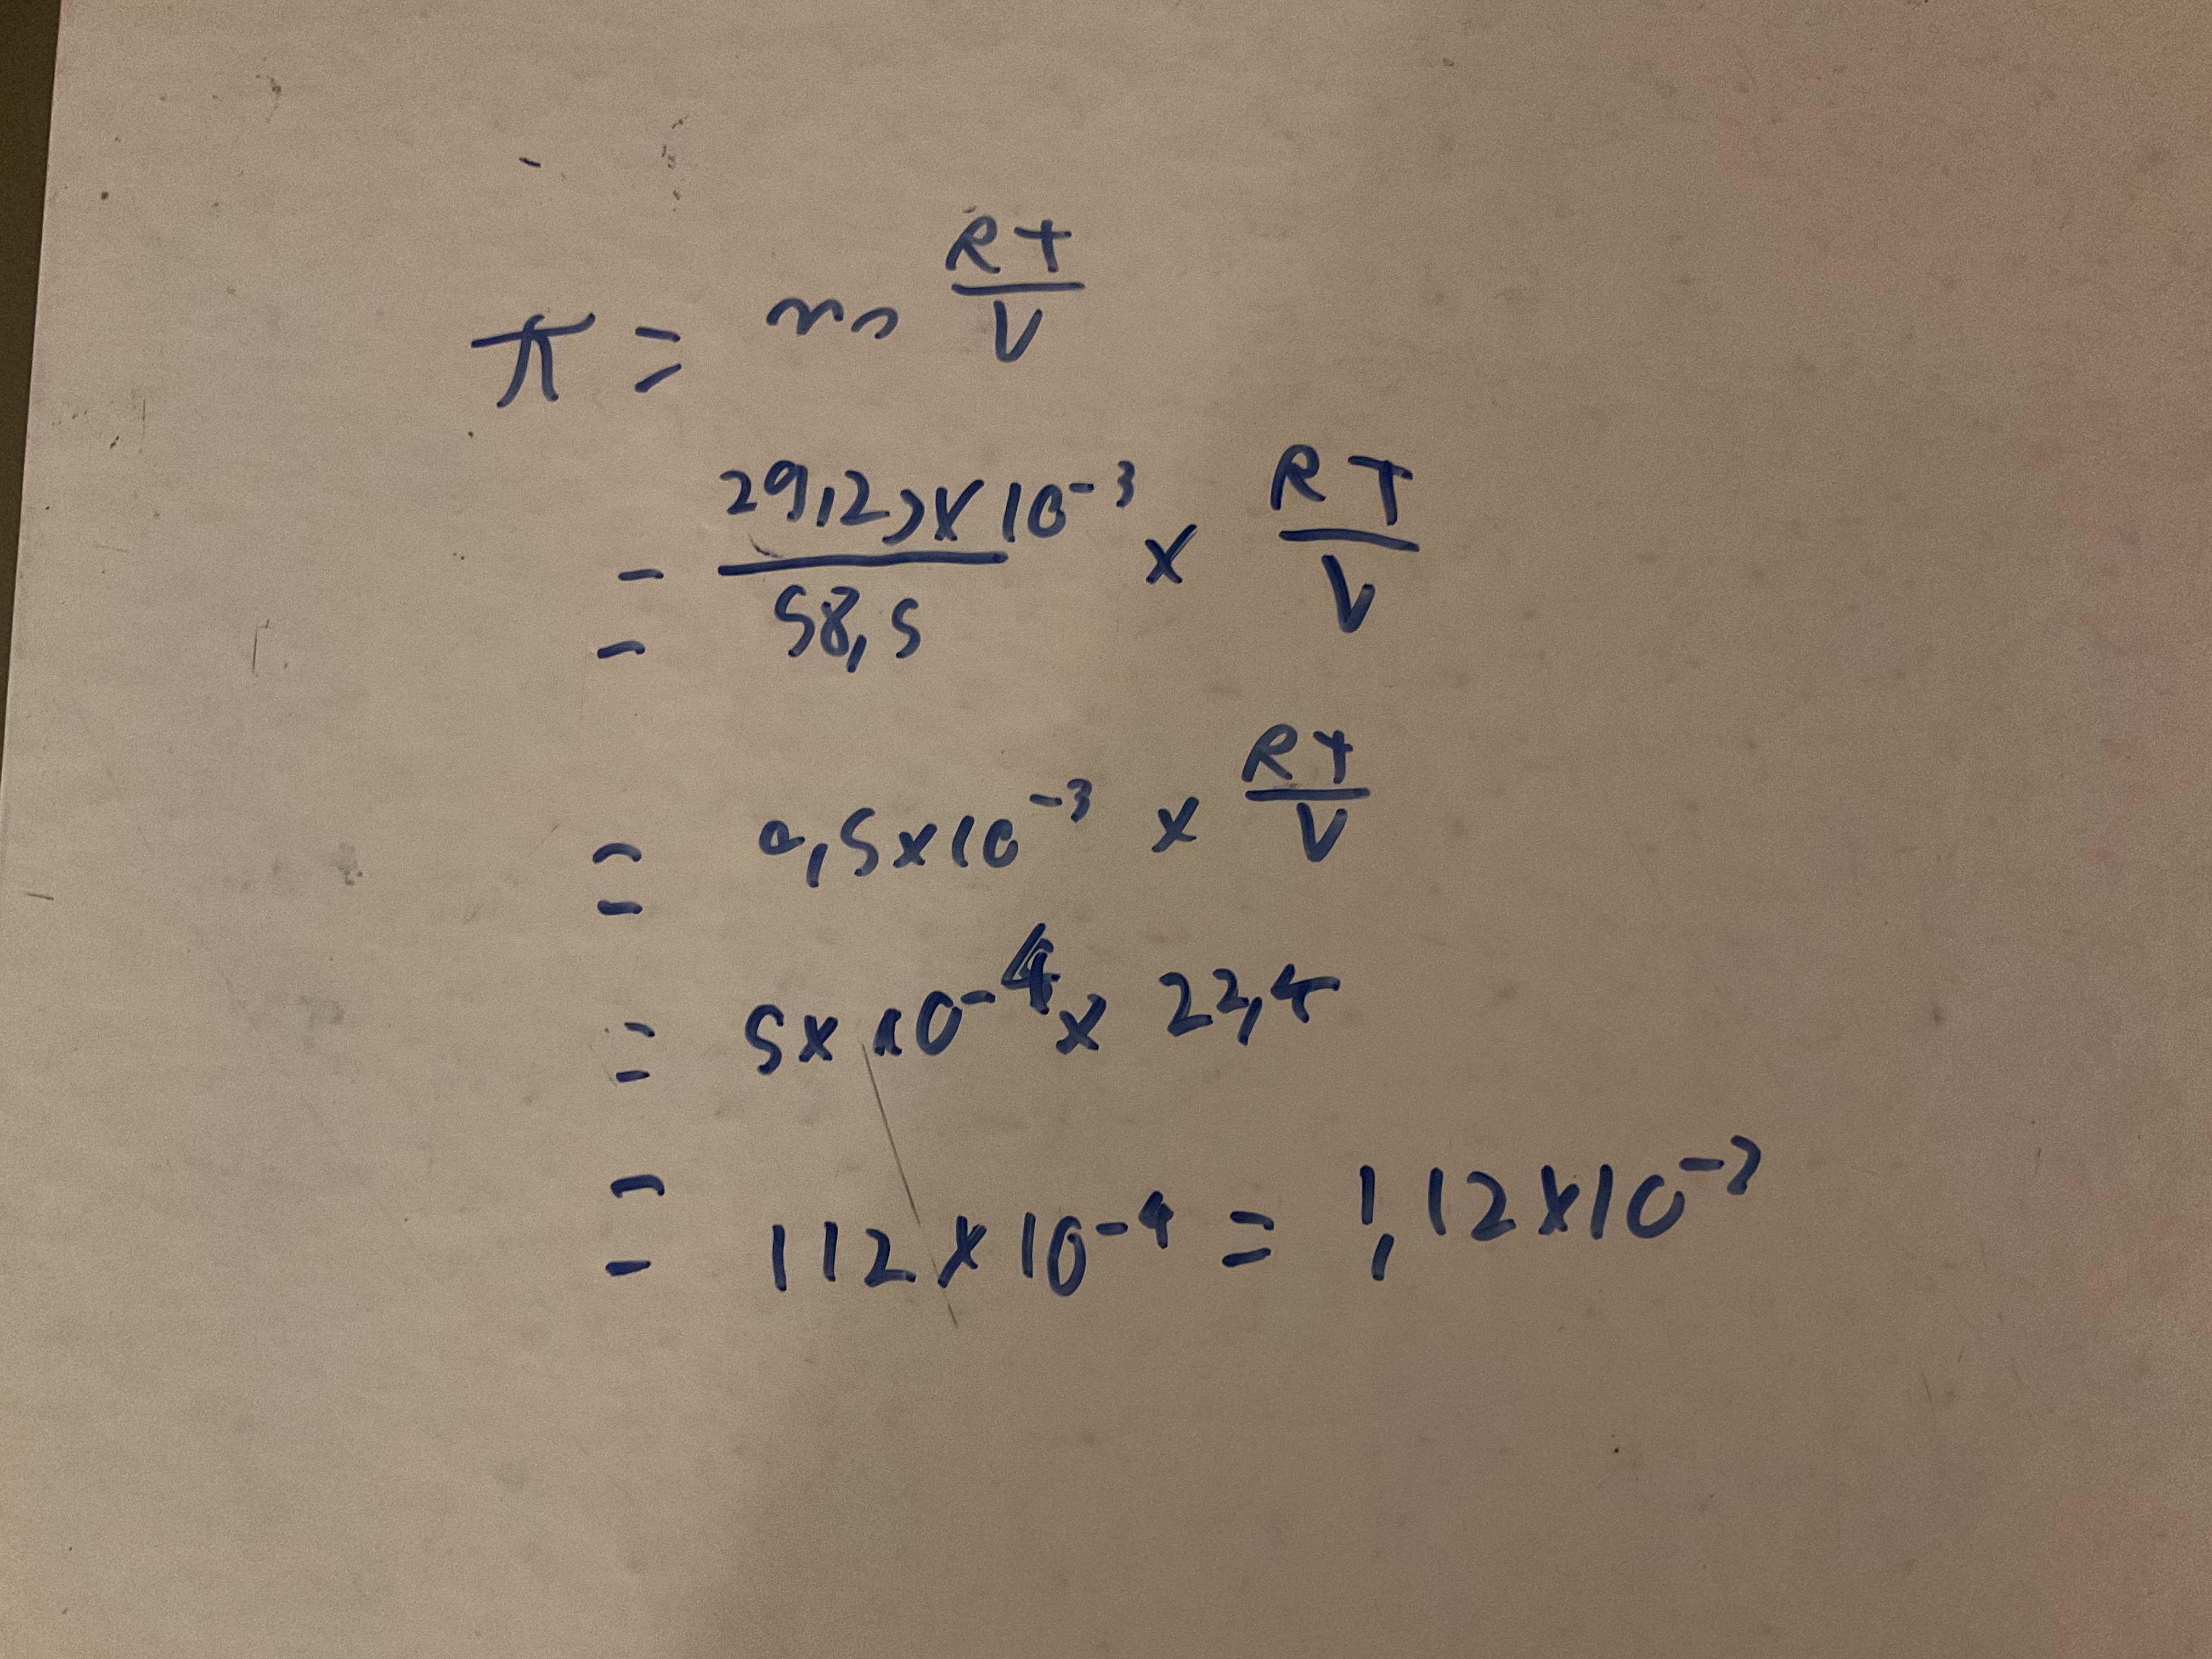 π = n RT/V
= 29,25×10⁻³/58,5 × RT/V
= 0,5×10⁻³ × RT/V
= 5×10⁻⁴ × 22,4
= 112×10⁻⁴ = 1,12×10⁻²